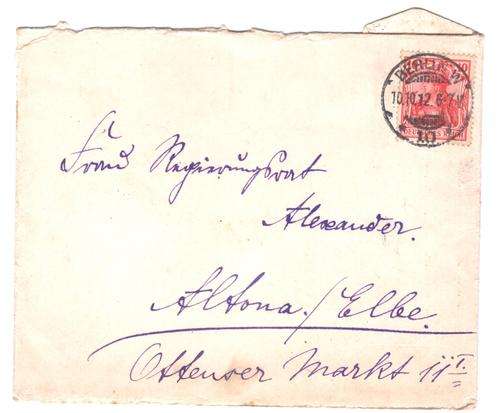 BERLIN W
10.10.12. 6-7 V
10
Frau Regierungsrat
Alexander.
Altona./Elbe.
Ottenser Markt 11 I.